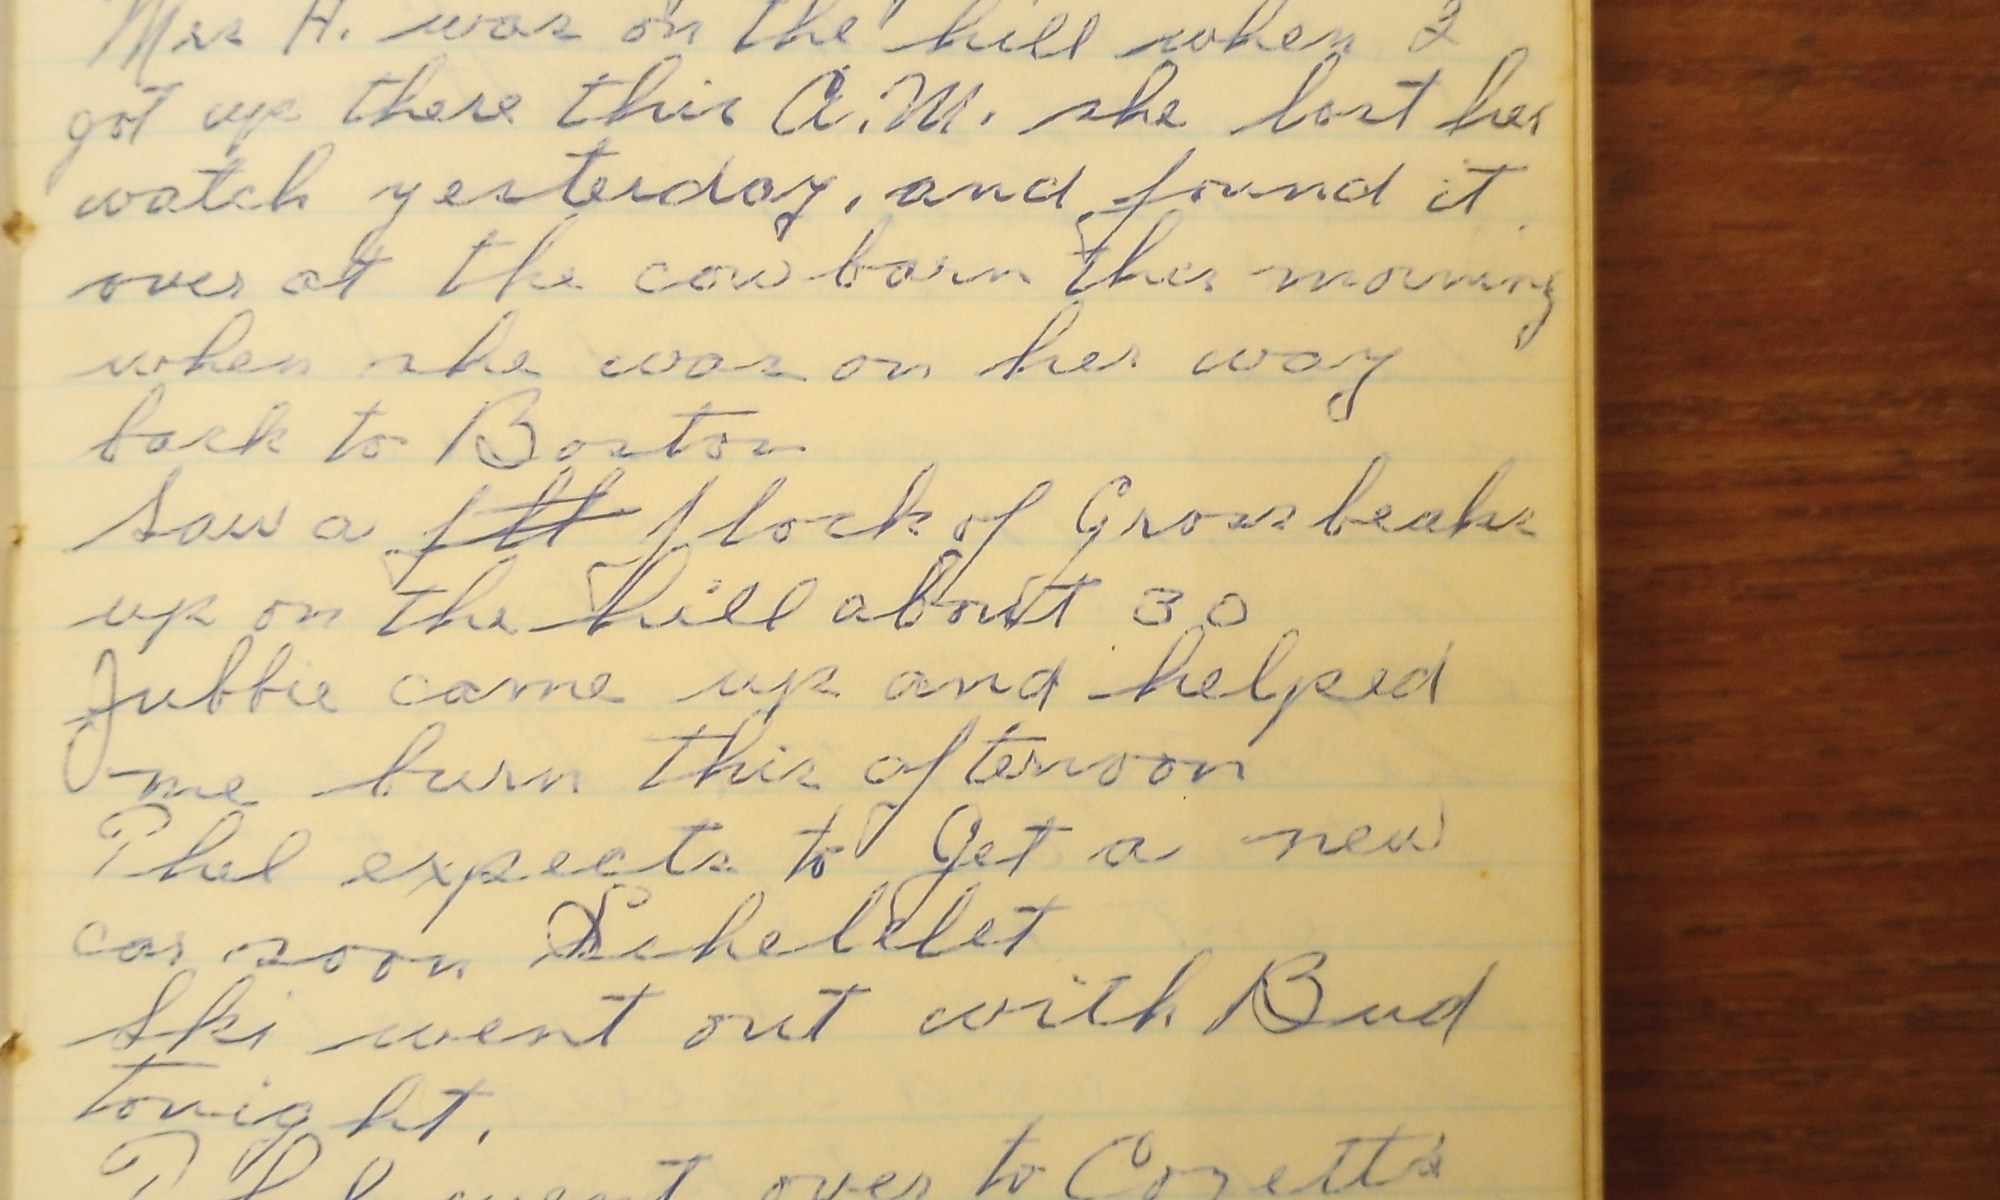 Mrs H. was on the hill when I
got up there this A.M. she lost her
watch yesterday, and found it
over at the cow barn this morning
when she was on her way
back to Boston
Saw a flock of Grossbeaks
up on the hill about 30
Jubbie came up and helped
me burn this afternoon
Phel expects to get a new
car soon
Ski went out with Bud
tonight.
went over to